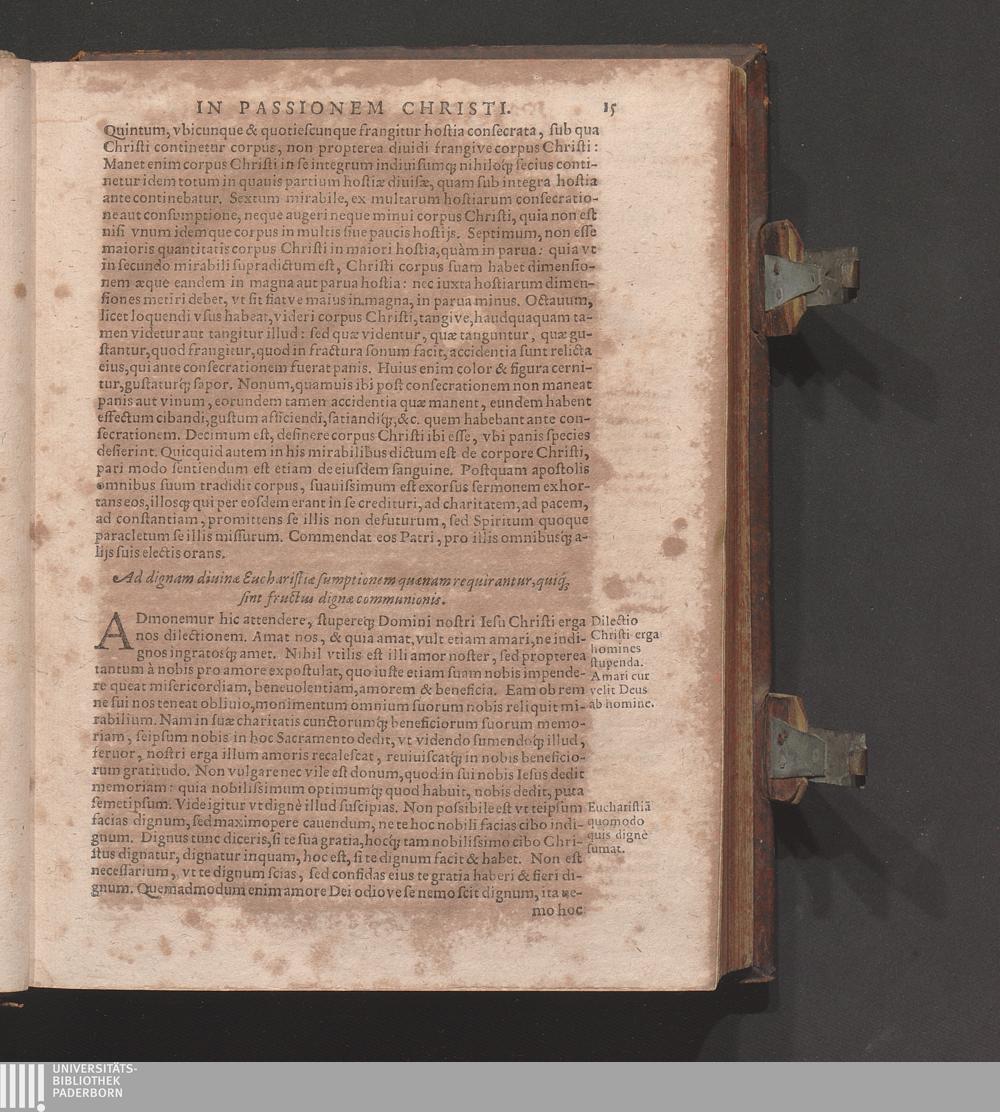 IN PASSIONEM CHRISTI. 15
Quintum, vbicunque & quotieſcunque frangitur hoſtia conſecrata, ſub qua
Chriſti continetur corpus, non propterea diuidi frangive corpus Chriſti:
Manet enim corpus Chriſti in ſe integrum indiuiſumq́; nihiloq́; ſecius conti-
netur idem totum in quauis partium hoſtiæ diuiſæ, quam ſub integra hoſtia
ante continebatur. Sextum mirabile, ex multarum hoſtiarum conſecratio-
ne aut conſumptione, neque augeri neque minui corpus Chriſti, quia non eſt
niſi vnum idemque corpus in multis ſiue paucis hoſtijs. Septimum, non eſſe
maioris quantitatis corpus Chriſti in maiori hoſtia, quàm in parua: quia vt
in ſecundo mirabili ſupradictum eſt, Chriſti corpus ſuam habet dimenſio-
nem æque eandem in magna aut parua hoſtia: nec iuxta hoſtiarum dimen-
ſiones metiri debet, vt ſit fiat ve maius in magna, in parua minus. Octauum,
licet loquendi vſus habeat, videri corpus Chriſti, tangi ve, haudquaquam ta-
men videtur aut tangitur illud: ſed quæ videntur, quæ tanguntur, quæ gu-
ſtantur, quod frangitur, quod in fractura ſonum facit, accidentia ſunt relicta
eius, qui ante conſecrationem fuerat panis. Huius enim color & figura cerni-
tur, guſtaturq́; ſapor. Nonum, quamuis ibi poſt conſecrationem non maneat
panis aut vinum, eorundem tamen accidentia quæ manent, eundem habent
effectum cibandi, guſtum afficiendi, ſatiandiq́;, &c. quem habebant ante con-
ſecrationem. Decimum eſt, deſinere corpus Chriſti ibi eſſe, vbi panis ſpecies
deſierint. Quicquid autem in his mirabilibus dictum eſt de corpore Chriſti,
pari modo ſentiendum eſt etiam de eiuſdem ſanguine. Poſtquam apoſtolis
omnibus ſuum tradidit corpus, ſuauiſsimum eſt exorſus ſermonem exhor-
tans eos, illosq́; qui per eoſdem erant in ſe credituri, ad charitatem, ad pacem,
ad conſtantiam, promittens ſe illis non defuturum, ſed Spiritum quoque
paracletum ſe illis miſſurum. Commendat eos Patri, pro illis omnibusq́; a-
lijs ſuis electis orans.
Ad dignam diuinæ Euchariſtiæ ſumptionem quænam requirantur, quiq́;
ſint fructus dignæ communionis.
ADmonemur hic attendere, ſtupereq́; Domini noſtri Ieſu Chriſti erga
nos dilectionem. Amat nos, & quia amat, vult etiam amari, ne indi-
gnos ingratosq́; amet. Nihil vtilis eſt illi amor noſter, ſed propterea
tantum à nobis pro amore expoſtulat, quo iuſte etiam ſuam nobis impende-
re queat miſericordiam, beneuolentiam, amorem & beneficia. Eam ob rem
ne ſui nos teneat obliuio, monimentum omnium ſuorum nobis reliquit mi-
rabilium. Nam in ſuæ charitatis cunctorumq́; beneficiorum ſuorum memo-
riam, ſeipſum nobis in hoc Sacramento dedit, vt videndo ſumendoq́; illud,
feruor, noſtri erga illum amoris recaleſcat, reuiuiſcatq́; in nobis beneficio-
rum gratitudo. Non vulgare nec vile eſt donum, quod in ſui nobis Ieſus dedit
memoriam: quia nobiliſsimum optimumq́; quod habuit, nobis dedit, puta
ſemetipſum. Vide igitur vt dignè illud ſuſcipias. Non poſsibile eſt vt teipſum
facias dignum, ſed maximopere cauendum, ne te hoc nobili facias cibo indi-
gnum. Dignus tunc diceris, ſi te ſua gratia, hocq́; tam nobiliſsimo cibo Chri-
ſtus dignatur, dignatur inquam, hoc eſt, ſi te dignum facit & habet. Non eſt
neceſſarium, vt te dignum ſcias, ſed confidas eius te gratia haberi & fieri di-
gnum. Quemadmodum enim amore Dei odio ve ſe nemo ſcit dignum, ita ne-
mo hoc
Dilectio
Chriſti erga
homines
ſtupenda.
Amari cur
velit Deus
ab homine.
Euchariſtiã
quomodo
quis dignè
ſumat.
UNIVERSITÄTS-
BIBLIOTHEK
PADERBORN